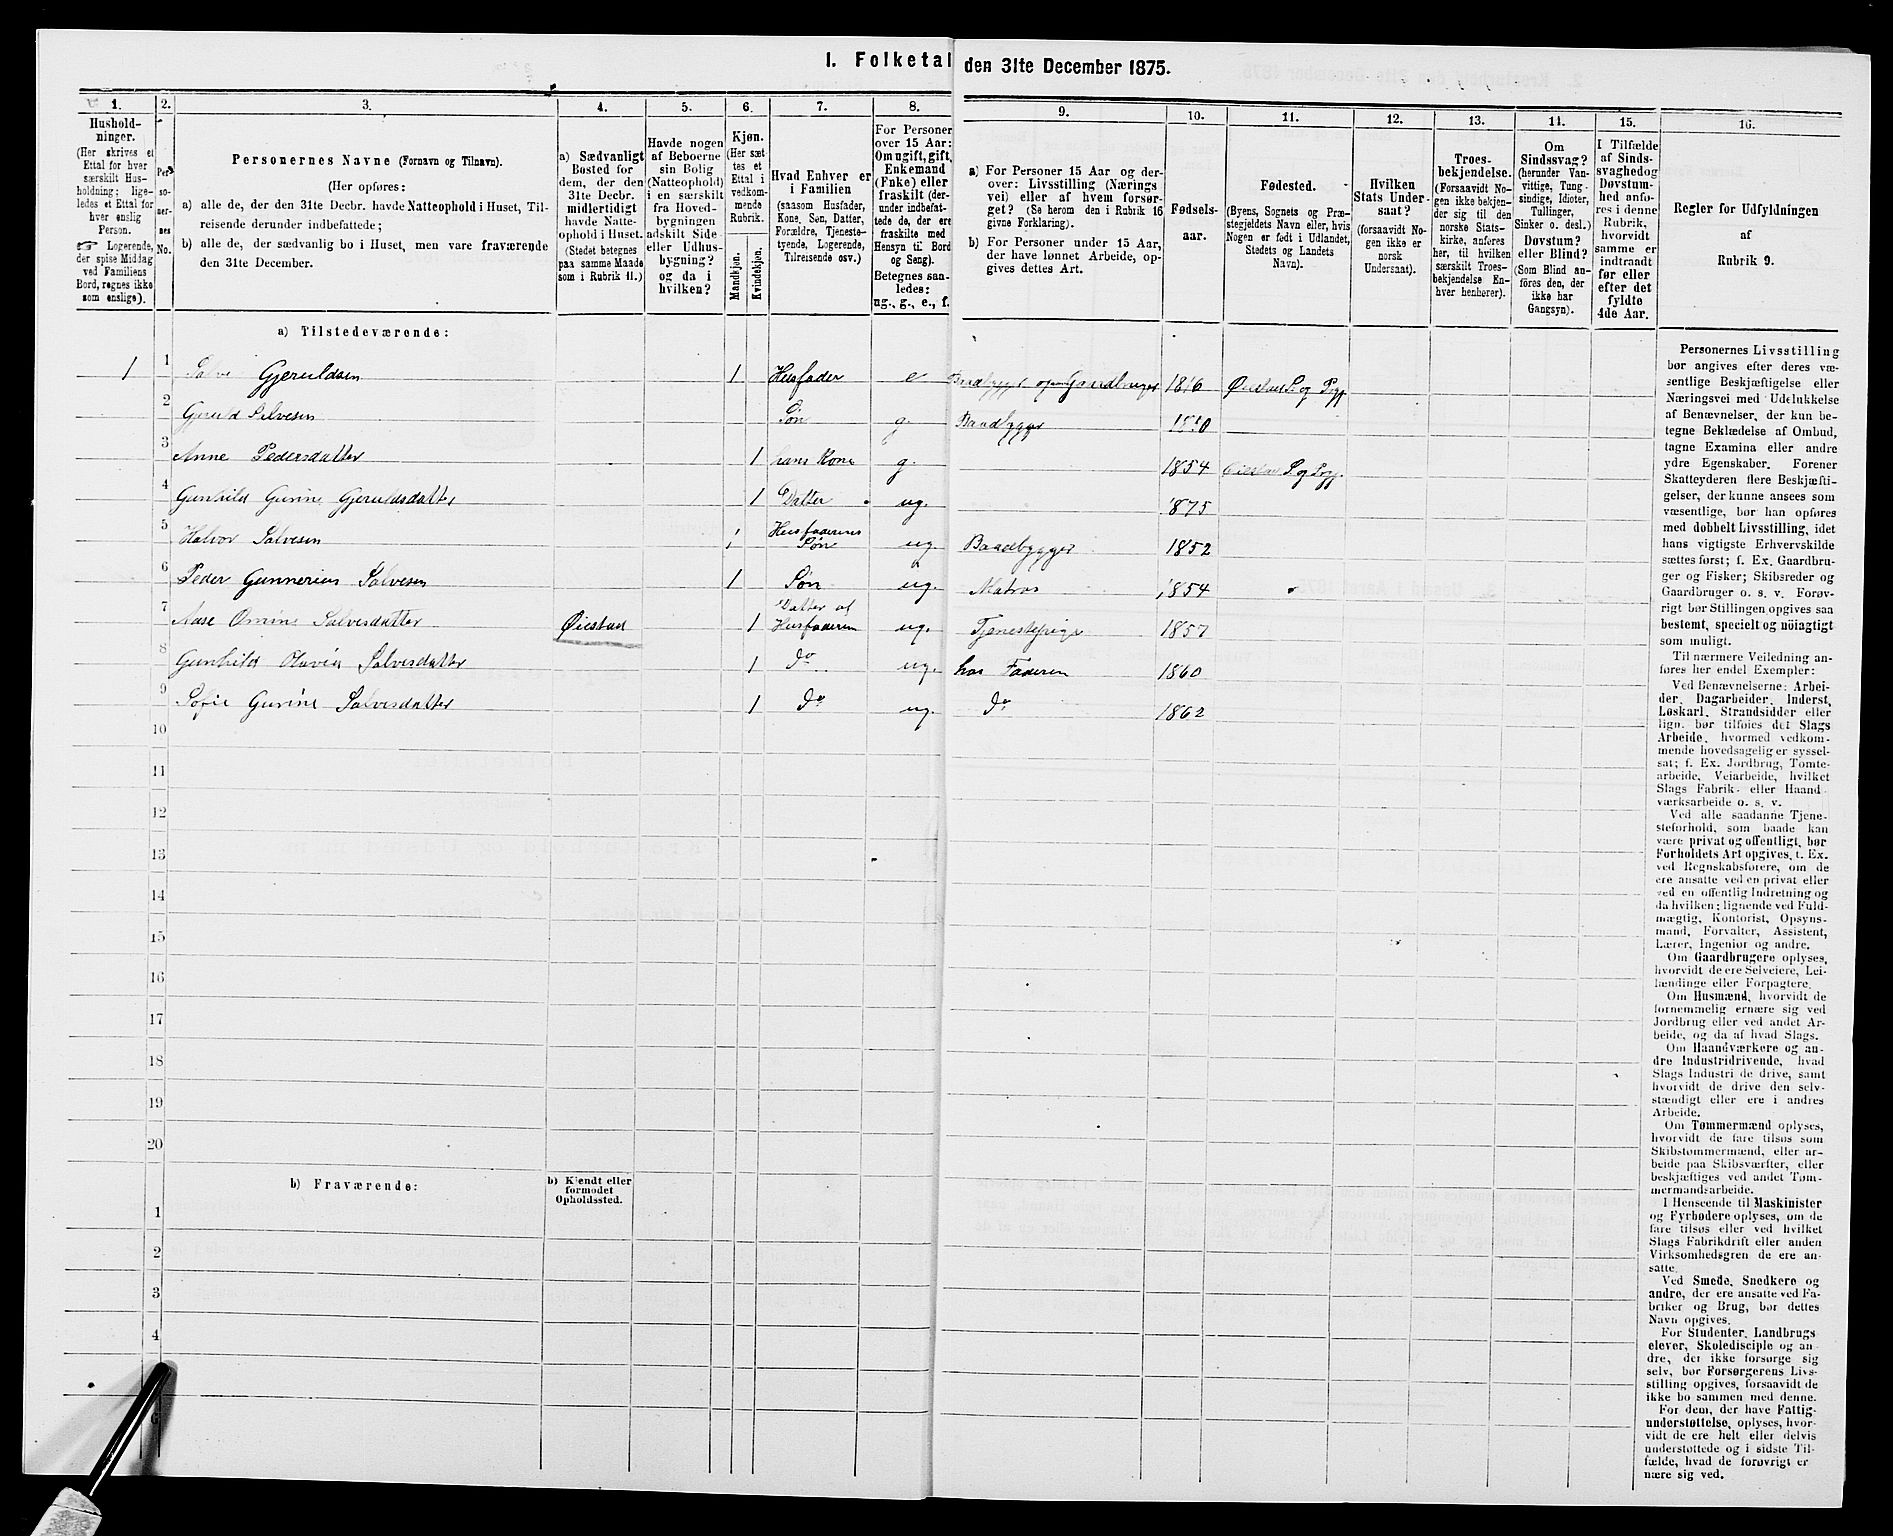 1. Folketal den 31te December 1875.
1.
Hushold-
ninger.
(Her skrives et
Ettal for hver
særskilt Hus-
holdning; lige-
ledes et Ettal for
hver enslig
Person.
☞ Logerende,
der spise Middag
ved Familiens
Bord, regnes ikke
som enslige).
2.
Per-
so-
ner-
nes
No.
3.
Personernes Navne (Fornavn og Tilnavn).
(Her opføres:
a) alle de, der den 31te Decbr. havde Natteophold i Huset, Til-
reisende derunder indbefattede;
b) alle de, der sædvanlig bo i Huset, men vare fraværende
den 31te December.
4.
a) Sædvanligt
Bosted for
dem, der den
31te Decbr.
midlertidigt
havde Natte-
ophold i Huset.
(Stedet betegnes
paa samme Maade
som i Rubrik 11.)
5.
Havde nogen
af Beboerne
sin Bolig
(Natteophold)
i en særskilt
fra Hoved-
bygningen
adskilt Side-
eller Udhus-
bygning?
og da i
hvilken?
6.
Kjøn.
(Her sæt-
tes et
Ettal i
vedkom-
mende
Rubrik.
Mandkjøn.
Kvindekjøn.
7.
Hvad Enhver er
i Familien
(saasom Husfader,
Kone, Søn, Datter,
Forældre, Tjeneste-
tyende, Logerende,
Tilreisende osv.)
8.
For Personer
over 15 Aar:
Om ugift, gift,
Enkemand
(Enke) eller
fraskilt (der-
under indbefat-
tede de, der ere
fraskilte med
Hensyn til Bord
og Seng).
Betegnes saa-
ledes:
ug., g., e., f.
9.
a) For Personer 15 Aar og der-
over: Livsstilling (Nærings
vei) eller af hvem forsør-
get? (Se herom den i Rubrik 16
givne Forklaring).
b) For Personer under 15 Aar,
der have lønnet Arbeide, op-
gives dettes Art.
10.
Fødsels-
aar.
11.
Fødested.
(Byens, Sognets og Præ-
stegjeldets Navn eller, hvis
Nogen er født i Udlandet,
Stedets og Landets
Navn).
12.
Hvilken
Stats Under-
saat?
(forsaavidt No-
gen ikke er
norsk
Undersaat).
13.
Troes-
bekjendelse.
(Forsaavidt No-
gen ikke bekjen-
der sig til den
norske Stats-
kirke, anføres
her, til hvilken
særskilt Troes-
bekjendelse En-
hver henhører).
14.
Om
Sindssvag?
(herunder Van-
vittige, Tung-
sindige, Idioter,
Tullinger,
Sinker o. desl.)
Døvstum?
eller Blind?
(Som Blind an-
føres den, der
ikke har
Gangsyn).
15.
I Tilfælde
af Sinds-
svaghed og
Døvstum-
hed anfø-
res i denne
Rubrik,
hvorvidt
samme er
indtraadt
før eller
efter det
fyldte
4de Aar.
16.
Regler for Udfyldningen
af
Rubrik 9.
a) Tilstedeværende:
1 1 Salve Gjeruldsen 1 Husfader e Baadbygger og Gaardbruger 1816 Øiestad S. og Pgj
2 Gjeruld Salvesen Søn g. Baadbygger 1850
3 Anne Pedersdatter 1 hans Kone g. 1854 Øiestad S. og Pgj.
4 Gunhild Gurine Gjeruldsdatter 1 Datter ug. 1875
5 Halvor Salvesen 1 Husfaderens Søn ug Baadbygger 1852
6 Peder Gunnerius Salvesen 1 Søn ug. Matros 1854
7 Aase Omine Salvesdatter Øiestad 1 Datter af Husfaderen ug. Tjenestepige 1857
8 Gunhild Olavia Salvesdatter 1 do ug. hos Faderen 1860
9 Sofie Gurine Salvesdatter 1 do ug. do 1862
10
11
12
13
14
15
16
17
18
19
20
b) Fraværende:
b) Kjendt eller
formodet
Opholdssted.
1
2
3
4
6
Personernes Livsstilling
bør angives efter deres væ-
sentlige Beskjæftigelse eller
Næringsvei med Udelukkelse
af Benævnelser, der kun be-
tegne Beklædelse af Ombud,
tagne Examina eller andre
ydre Egenskaber. Forener
Skatteyderen flere Beskjæfti-
gelser, der kunne ansees som
væsentlige, bør han opføres
med dobbelt Livsstilling, idet
hans vigtigste Erhvervskilde
sættes først; f. Ex. Gaardbru-
ger og Fisker; Skibsreder og
Gaardbruger o. s. v. Forøv-
rigt bør Stillingen opgives saa
bestemt, specielt og nöiagtigt
som muligt.
Til nærmere Veiledning an-
føres her endel Exempler:
Ved Benævnelserne: Arbei-
der, Dagarbeider, Inderst,
Løskarl, Strandsidder eller
lign. bør tilføies det Slags
Arbeide, hvormed vedkom-
mende hovedsagelig er syssel-
sat; f. Ex. Jordbrug, Tomte-
arbeide, Veiarbeide, hvilket
Slags Fabrik- eller Haand-
værksarbeide o. s. v.
Ved alle saadanne Tjene-
steforhold, som baade kan
være privat og offentligt, bør
Forholdets Art opgives, t. Ex.
ved Regnskabsførere, om de
ere ansatte ved en privat eller
ved en offentlig Indretning og
da hvilken; lignende ved Fuld-
mægtig, Kontorist, Opsyns-
mand, Forvalter, Assistent,
Lærer, Ingeniør og andre.
Om Gaardbrugere oplyses,
hvorvidt de ere Selveiere, Lei-
lændinge eller Forpagtere.
Om Husmænd, hvorvidt de
fornemmelig ernære sig ved
Jordbrug eller ved andet Ar-
beide, og da af hvad Slags.
Om Haandværkere og an-
dre Industridrivende, hvad
Slags Industri de drive, samt
hvorvidt de drive den selv-
stændigt eller ere i andres
Arbeide.
Om Tømmermænd oplyses,
hvorvidt de fare tilsøs som
Skibstømmermænd, eller ar-
beide paa Skibsværfter, eller
beskjæftiges ved andet Tøm-
mermandsarbeide.
I Henseende til Maskinister
og Fyrbødere oplyses, om de
fare tilsøs eller ved hvilket
Slags Fabrikdrift eller anden
Virksomhedsgren de ere an-
satte.
Ved Smede, Snedkere og
andre, der ere ansatte ved Fa-
briker og Brug, bør dettes
Navn opgives.
For Studenter, Landbrugs
elever, Skoledisciple og an-
dre, der ikke forsørge sig
selv, bør Forsørgerens Livs-
stilling opgives, forsaavidt de
ikke bo sammen med denne.
For dem, der have Fattig-
understøttelse, oplyses, hvor-
vidt de ere helt eller delvis
understøttede og i sidste Til-
fælde, hvad de forøvrigt er
nære sig ved.